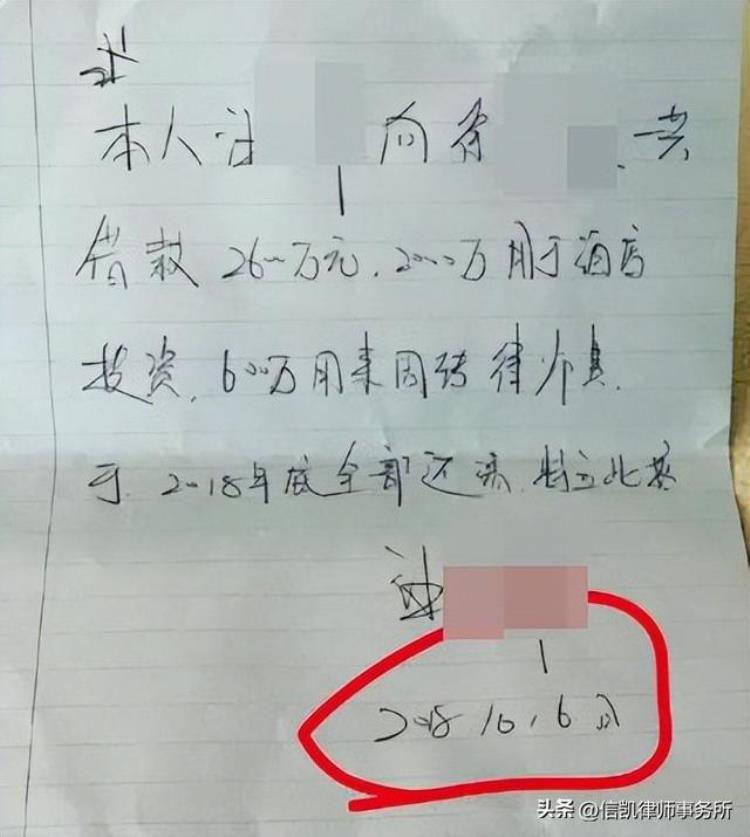 本人
向
共
借款2600万元，2000万用于酒店
投资，600万用来周转律师费，
于2018年底全部还清，特立此据
2018
头条 @信凯律师事务所